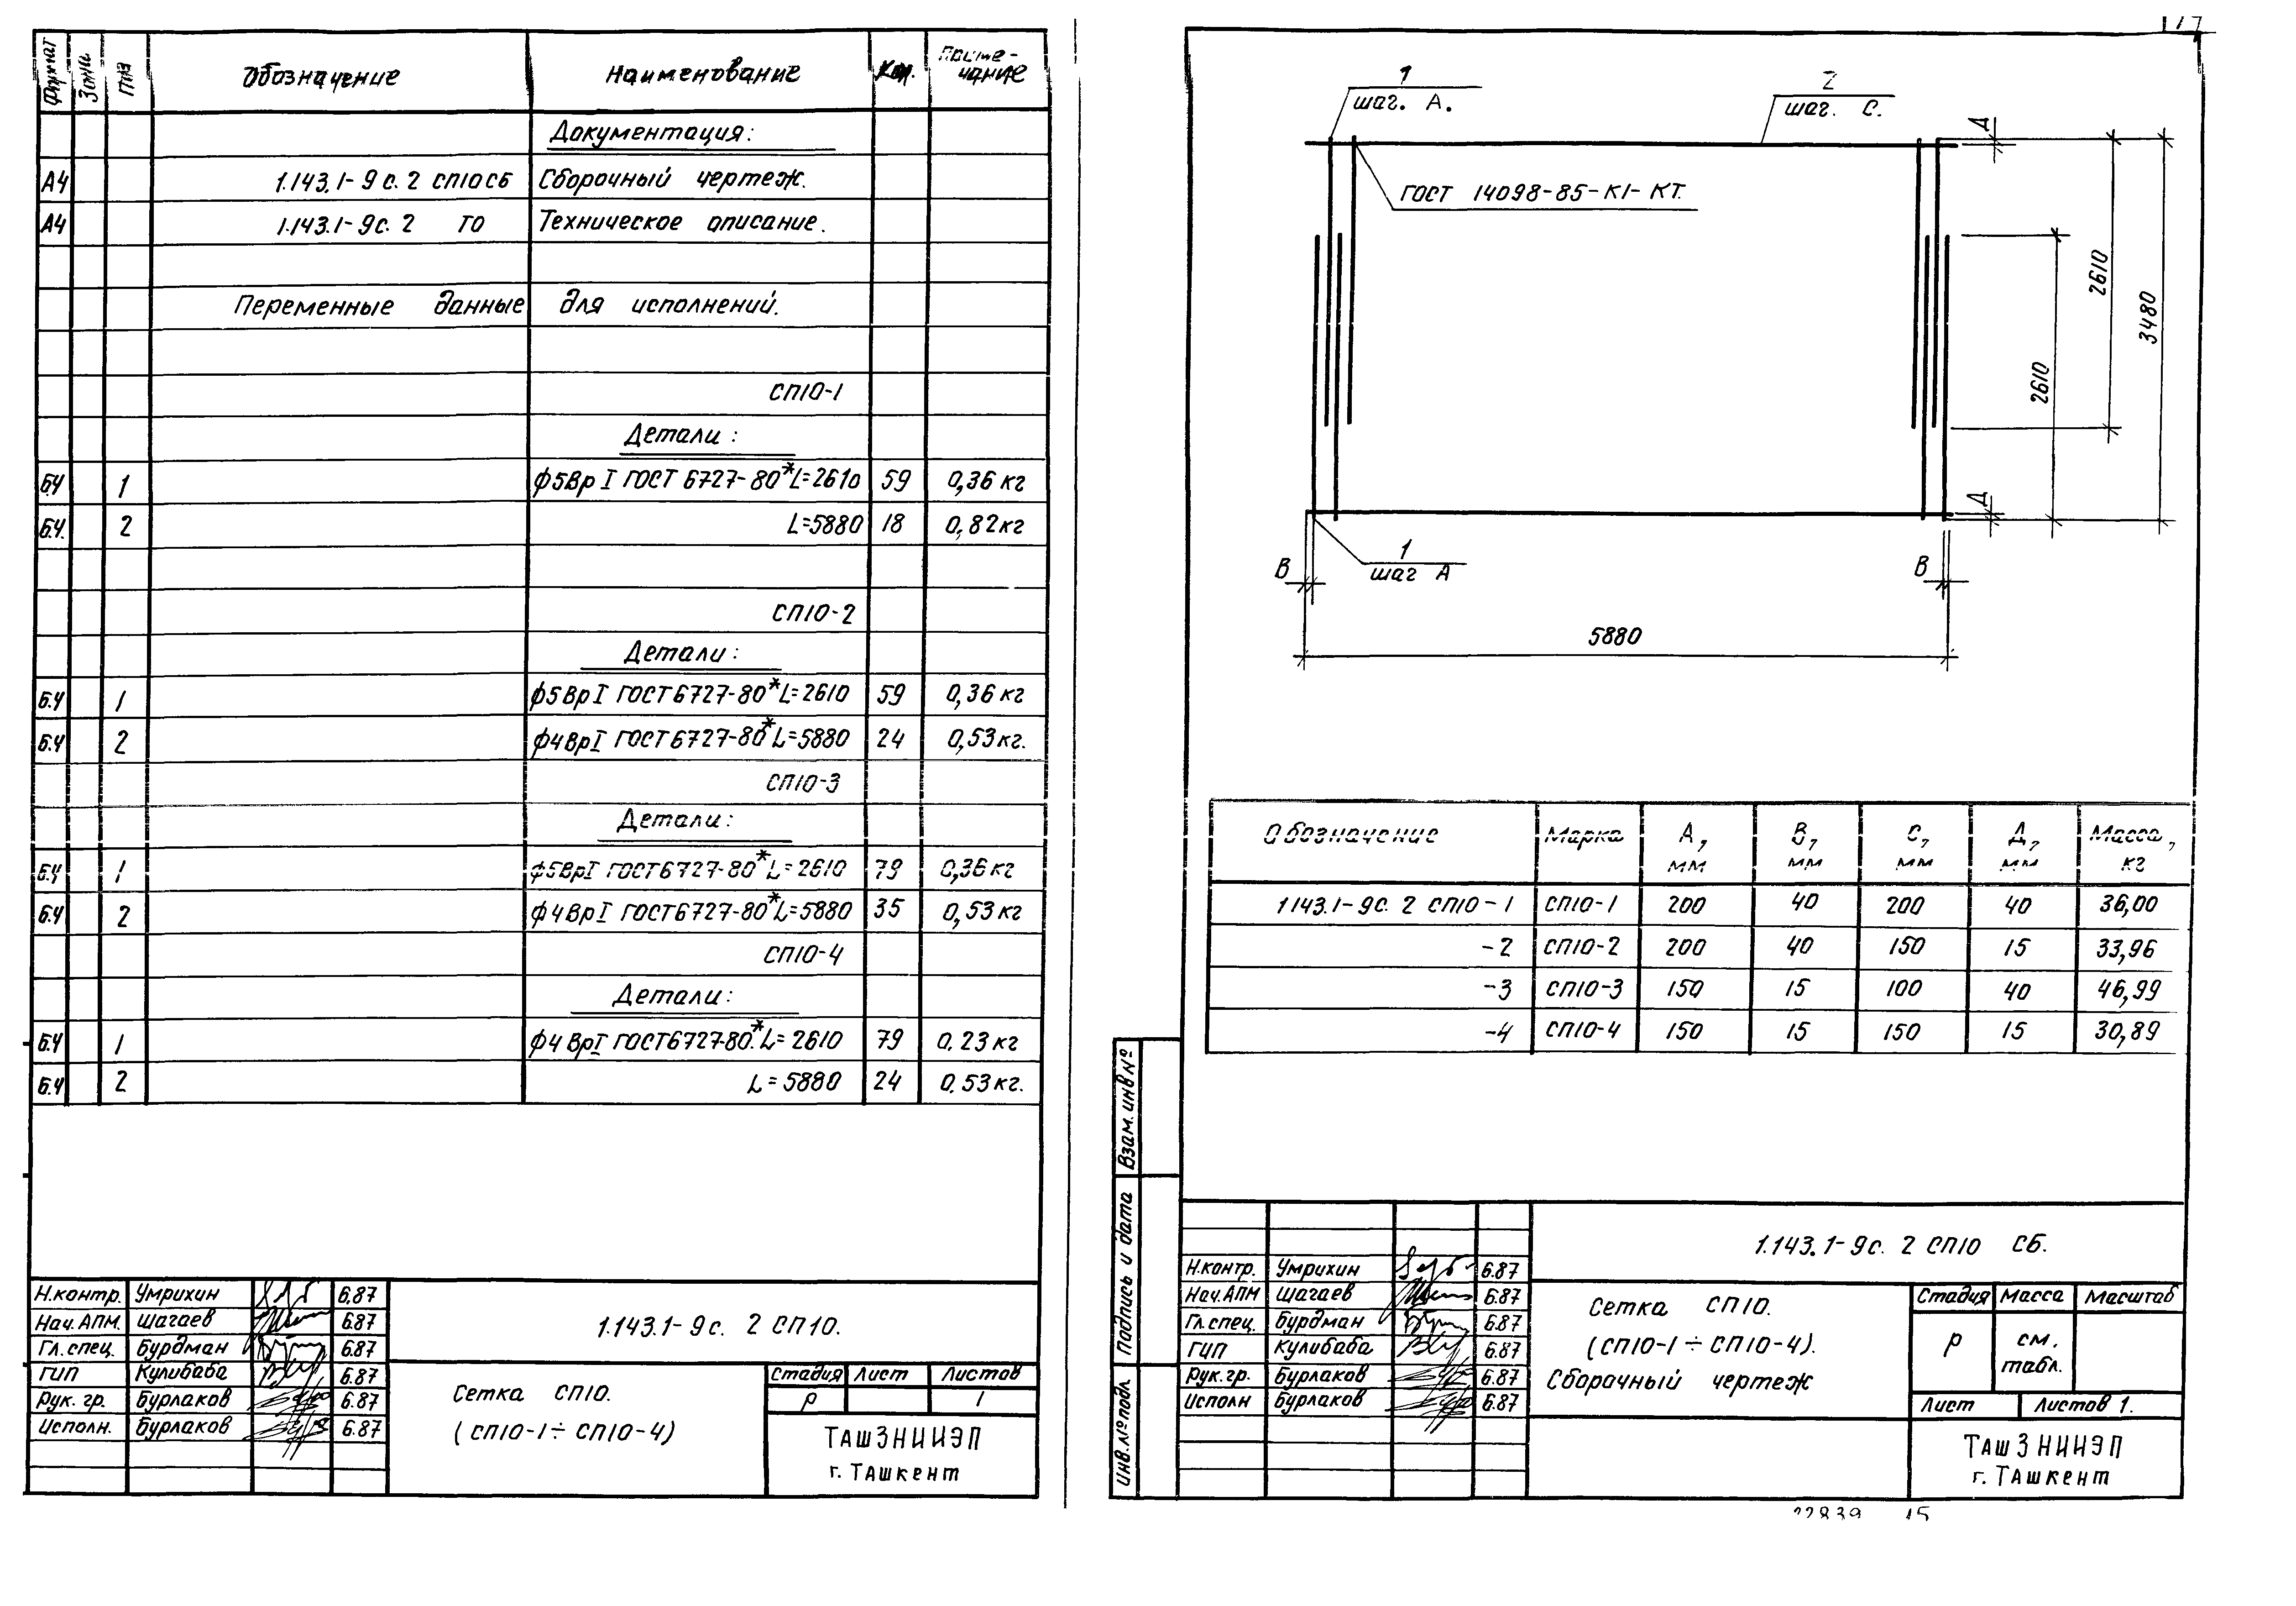 Формат Зона Поз Обозначение Наименование Кол. Приме-
чание
Документация:
А4 1.143.1-9с.2 СП10СБ Сборочный чертеж.
А4 1.143.1-9с.2 ТО Техническое описание.
Переменные данные для исполнений.
СП10-1
Детали:
Б.Ч 1 ϕ5ВрI ГОСТ 6727-80* L=2610 59 0,36 кг
Б.Ч. 2 L=5880 18 0,82кг
СП10-2
Детали:
Б.Ч 1 ϕ5ВрI ГОСТ 6727-80* L=2610 59 0,36 кг
Б.Ч 2 ϕ4ВрI ГОСТ 6727-80* L=5880 24 0,53кг.
СП10-3
Детали:
Б.Ч 1 ϕ5ВрI ГОСТ 6727-80* L=2610 79 0,36 кг
Б.Ч 2 ϕ4ВрI ГОСТ 6727-80* L=5880 35 0,53 кг
СП10-4
Детали:
Б.Ч 1 ϕ4ВрI ГОСТ 6727-80.* L=2610 79 0.23 кг
Б.Ч 2 L=5880 24 0.53кг.
Н.контр. Умрихин 6.87
Нач.АПМ. Шагаев 6.87
Гл.спец. Бурдман 6.87
ГИП Кулибаба 6.87
Рук.гр. Бурлаков 6.87
Исполн. Бурлаков 6.87
1.143.1-9с. 2 СП10.
Сетка СП10.
(СП10-1÷СП10-4)
Стадия Лист Листов
Р 1
ТашЗНИИЭП
г. Ташкент
1
шаг. А.
2
шаг. С.
ГОСТ 14098-85-К1-КТ.
Д
2610
3480
2610
Д
1
шаг А
В
В
5880
Обозначение Марка А, мм В, мм С, мм Д, мм Масса, кг
1.143.1-9с. 2 СП10-1 СП10-1 200 40 200 40 36,00
-2 СП10-2 200 40 150 15 33,96
-3 СП10-3 150 15 100 40 46,99
-4 СП10-4 150 15 150 15 30,89
Взам. инв №
Подпись и дата
Инв.№ подл.
1.143.1-9с. 2 СП10 СБ.
Н.контр. Умрихин 6.87
Нач.АПМ Шагаев 6.87
Гл.спец. Бурдман 6.87
ГИП Кулибаба 6.87
Рук.гр. Бурлаков 6.87
Исполн Бурлаков 6.87
Сетка СП10.
(СП10-1÷СП10-4).
Сборочный чертеж
Стадия Масса Масштаб
Р см.
табл.
Лист Листов 1.
ТашЗНИИЭП
г. Ташкент
22839 15